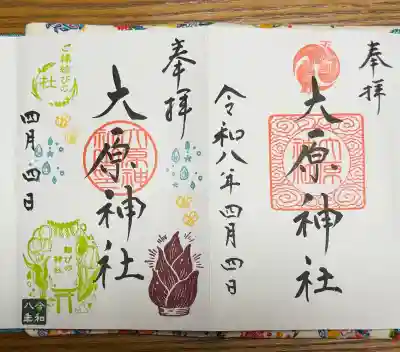 奉拝
大原神社
令和八年四月四日
奉拝
大原神社
四月四日
ご縁結びの
社
結びの
神社
令和
八年